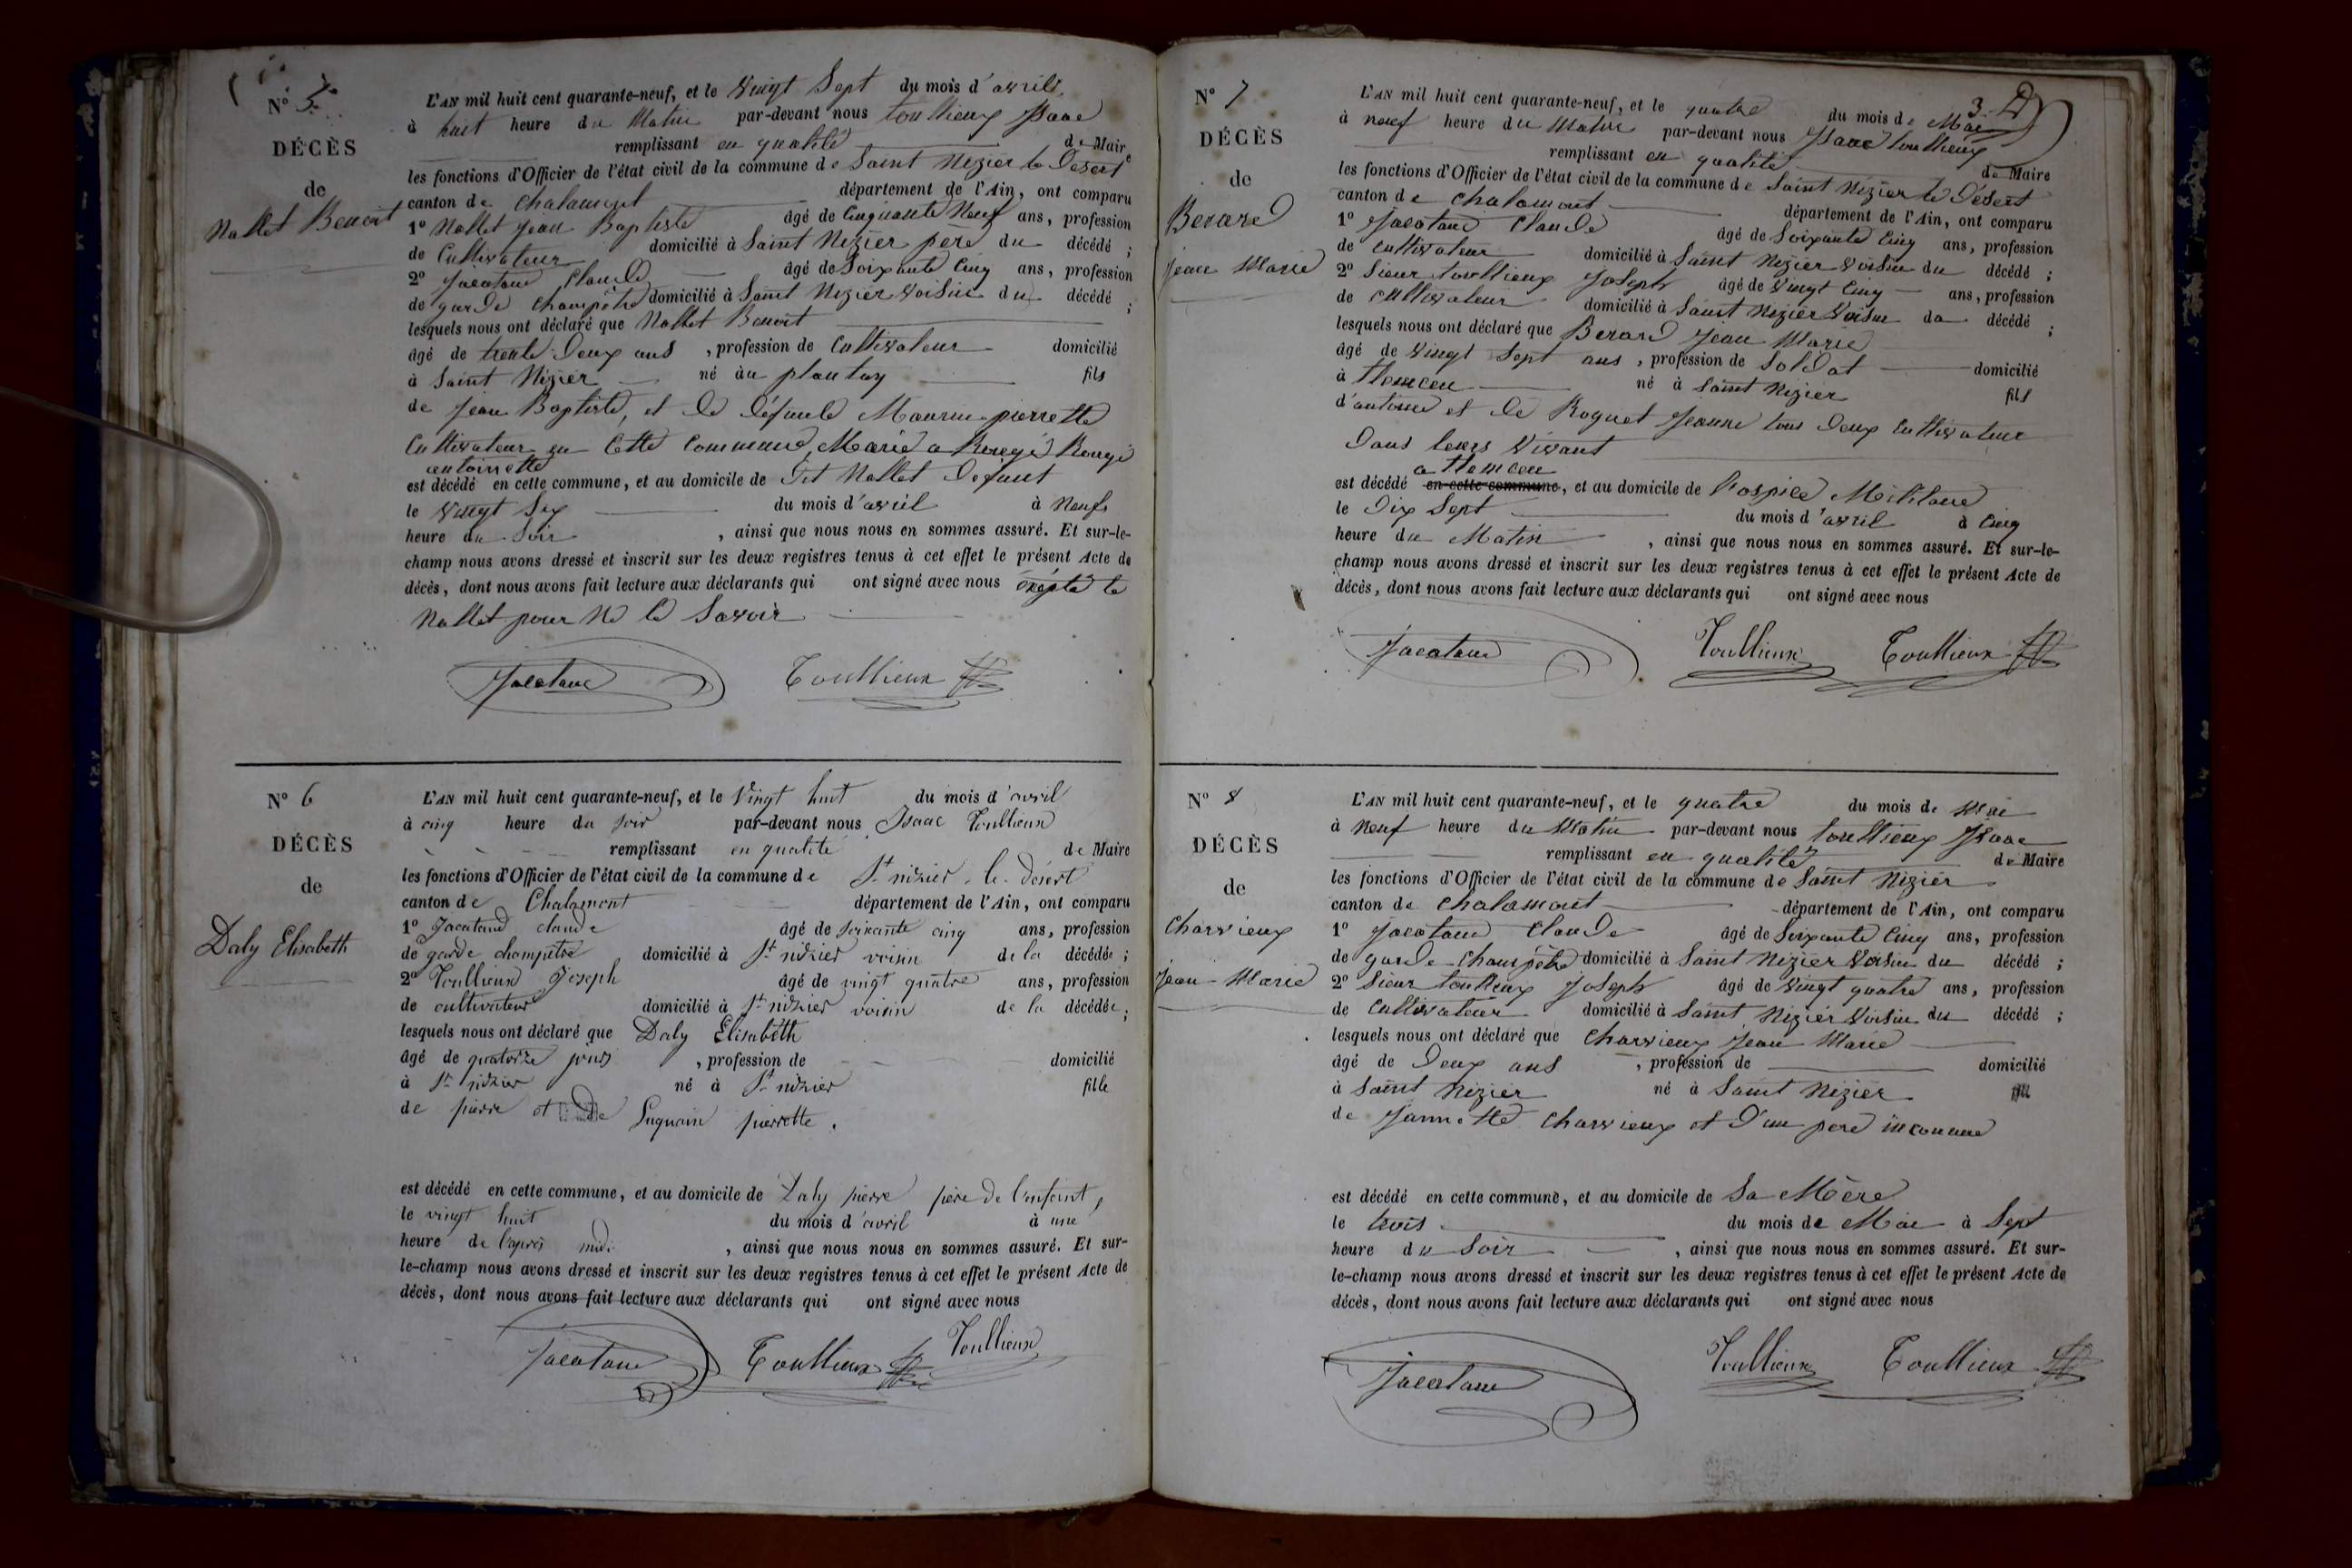 N° 5
DÉCÈS
de
Nallet Benoit
L'AN mil huit cent quarante-neuf, et le Vingt Sept du mois d'avril
à huit heure du Matin par-devant nous toullieux Isaac
remplissant en qualité de Maire
les fonctions d'Officier de l'état civil de la commune de Saint Nizier le Desert
canton de Chalamont département de l'Ain, ont comparu
1° Nallet jean Baptiste âgé de Cinquante Neuf ans, profession
de Cultivateur domicilié à Saint Nizier père du décédé ;
2° Jacatand Claude âgé de Soixante Cinq ans, profession
de garde Champêtre domicilié à Saint Nizier Voisin du décédé ;
lesquels nous ont déclaré que Nallet Benoit
âgé de trente Deux ans , profession de Cultivateur domicilié
à Saint Nizier né au plantay fils
de jean Baptiste, et de défunte pierrette
Cultivateur en Cette Commune, Marié a Rougé
antoinette
est décédé en cette commune, et au domicile de Dit Nallet Defunt
le vingt Six du mois d'avril à Neuf
heure du Soir , ainsi que nous nous en sommes assuré. Et sur-le-
champ nous avons dressé et inscrit sur les deux registres tenus à cet effet le présent Acte de
décès, dont nous avons fait lecture aux déclarants qui ont signé avec nous exépté le
Nallet pour Ne le Savoir
Jacatand Toullieux
N° 6
DÉCÈS
de
Daly Elisabeth
L'AN mil huit cent quarante-neuf, et le Vingt huit du mois d'avril
à cinq heure du soir par-devant nous Isaac Toullieux
remplissant en qualité de Maire
les fonctions d'Officier de l'état civil de la commune de St nizier-le-désert
canton de Chalamont département de l'Ain, ont comparu
1° Jacatand claude âgé de soixante cinq ans, profession
de garde champêtre domicilié à St nizier voisin de la décédée ;
2° Toullieux Joseph âgé de vingt quatre ans, profession
de cultivateur domicilié à St nizier voisin de la décédée ;
lesquels nous ont déclaré que Daly Elisabeth
âgé de quatorze jours , profession de domicilié
à St nizier né à St nizier fille
de pierre et de Luguain pierrette.
est décédé en cette commune, et au domicile de Daly pierre père de l'enfant,
le vingt huit du mois d'avril à une
heure de l'après midi , ainsi que nous nous en sommes assuré. Et sur-
le-champ nous avons dressé et inscrit sur les deux registres tenus à cet effet le présent Acte de
décès, dont nous avons fait lecture aux déclarants qui ont signé avec nous
Jacatand Toullieux Toullieux
3
N° 7
DÉCÈS
de
Berard
jean Marie
L'AN mil huit cent quarante-neuf, et le quatre du mois de Mai
à neuf heure du Matin par-devant nous Isaac toullieux
remplissant en qualité de Maire
les fonctions d'Officier de l'état civil de la commune de Saint Nizier le Désert
canton de Chalamont département de l'Ain, ont comparu
1° Jacatand Claude âgé de Soixante Cinq ans, profession
de Cultivateur domicilié à Saint Nizier Voisin du décédé ;
2° Sieur toullieux Joseph âgé de Vingt Cinq ans, profession
de Cultivateur domicilié à Saint Nizier Voisin du décédé ;
lesquels nous ont déclaré que Berard jean Marie
âgé de Vingt Sept ans , profession de Soldat domicilié
à tlemcen né à Saint Nizier fils
d'antoine et de Roguet Jeanne tous Deux Cultivateur
Dans leurs Vivant
a tlemcen
est décédé en cette commune, et au domicile de l'ospice Militaire
le Dix Sept du mois d'avril à Cinq
heure du Matin , ainsi que nous nous en sommes assuré. Et sur-le-
champ nous avons dressé et inscrit sur les deux registres tenus à cet effet le présent Acte de
décès, dont nous avons fait lecture aux déclarants qui ont signé avec nous
Jacatand Toullieux Toullieux
N° 8
DÉCÈS
de
Charvieux
jean Marie
L'AN mil huit cent quarante-neuf, et le quatre du mois de Mai
à Neuf heure du Matin par-devant nous toullieux Isaac
remplissant en qualité de Maire
les fonctions d'Officier de l'état civil de la commune de Saint Nizier
canton de Chalamont département de l'Ain, ont comparu
1° Jacatand Claude âgé de Soixante Cinq ans, profession
de garde Champêtre domicilié à Saint Nizier Voisin du décédé ;
2° Sieur toullieux Joseph âgé de Vingt quatre ans, profession
de Cultivateur domicilié à Saint Nizier Voisin du décédé ;
lesquels nous ont déclaré que Charvieux Jean Marie
âgé de Deux ans , profession de domicilié
à Saint Nizier né à Saint Nizier
de Jannette Charvieux et D'un pere inconnue
est décédé en cette commune, et au domicile de Sa Mère
le trois du mois de Mai à Sept
heure du Soir , ainsi que nous nous en sommes assuré. Et sur-
le-champ nous avons dressé et inscrit sur les deux registres tenus à cet effet le présent Acte de
décès, dont nous avons fait lecture aux déclarants qui ont signé avec nous
Jacatand Toullieux Toullieux